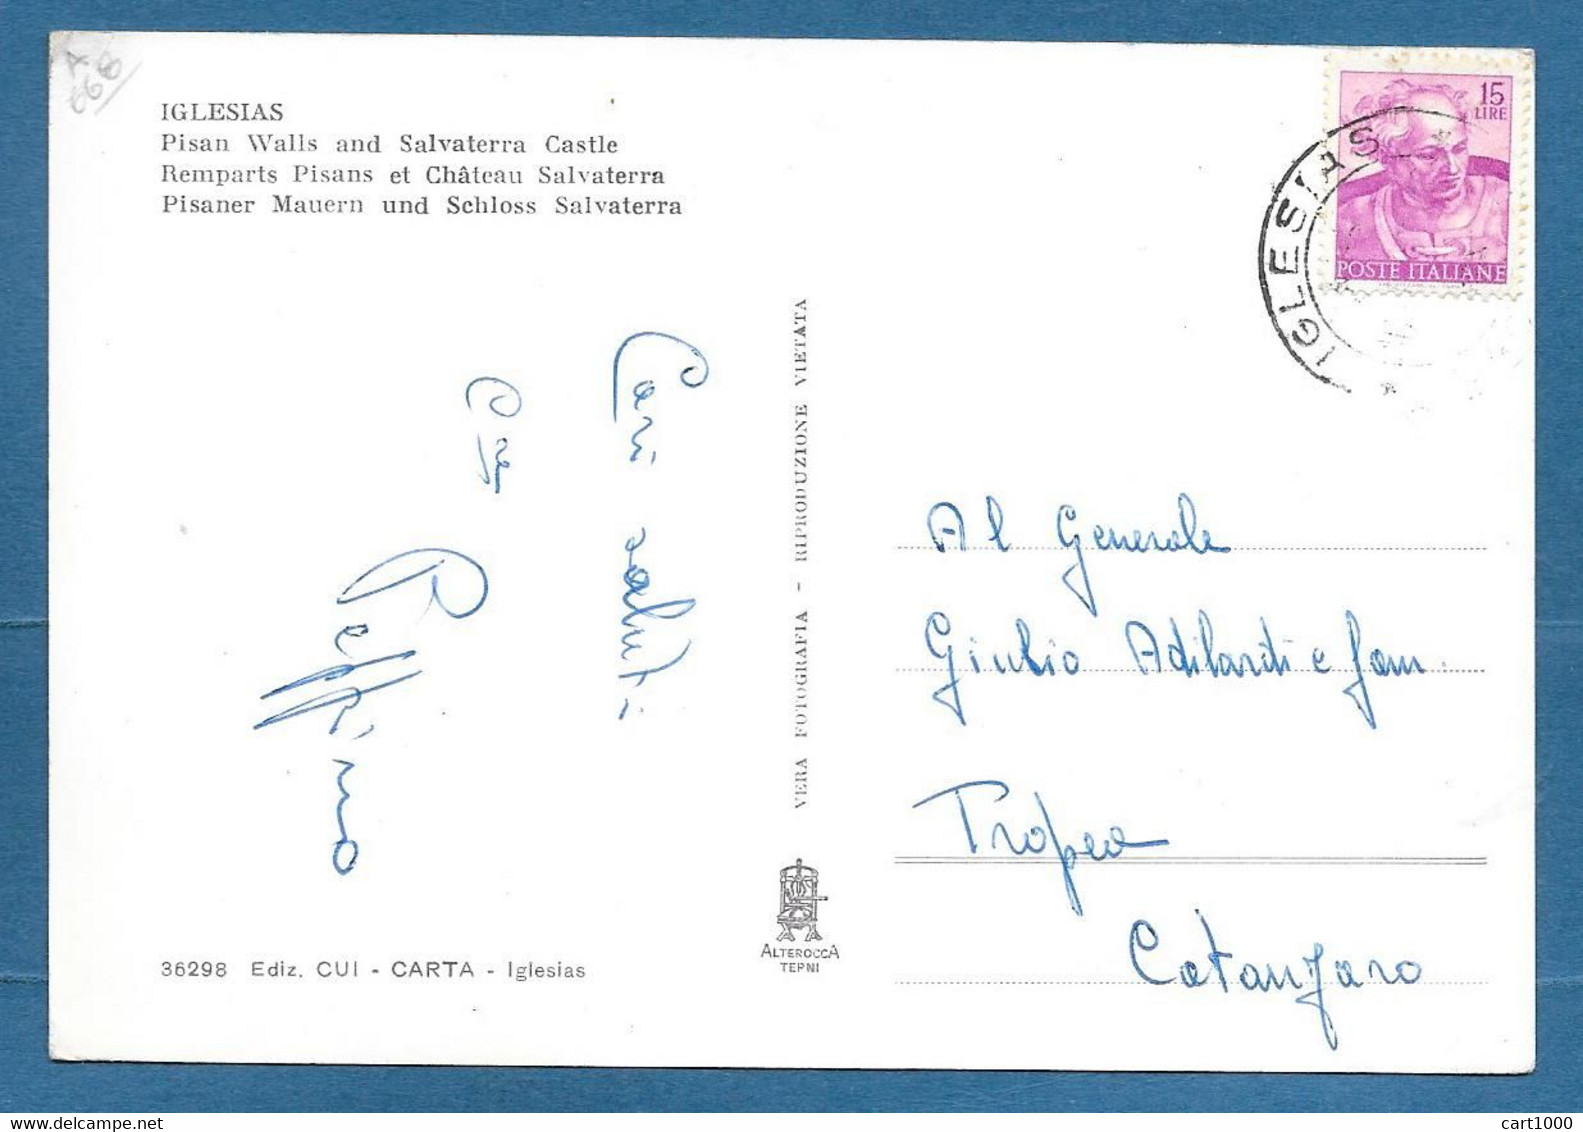 A 668
IGLESIAS
Pisan Walls and Salvaterra Castle
Remparts Pisans et Château Salvaterra
Pisaner Mauern und Schloss Salvaterra
15
LIRE
POSTE ITALIANE
IGLESIAS
VERA FOTOGRAFIA - RIPRODUZIONE VIETATA
Cari saluti
Al Generale
Giulio Adilardi e fam.
Tropea
Catanzaro
ALTEROCCA
TERNI
36298 Ediz. CUI - CARTA - Iglesias
cart1000